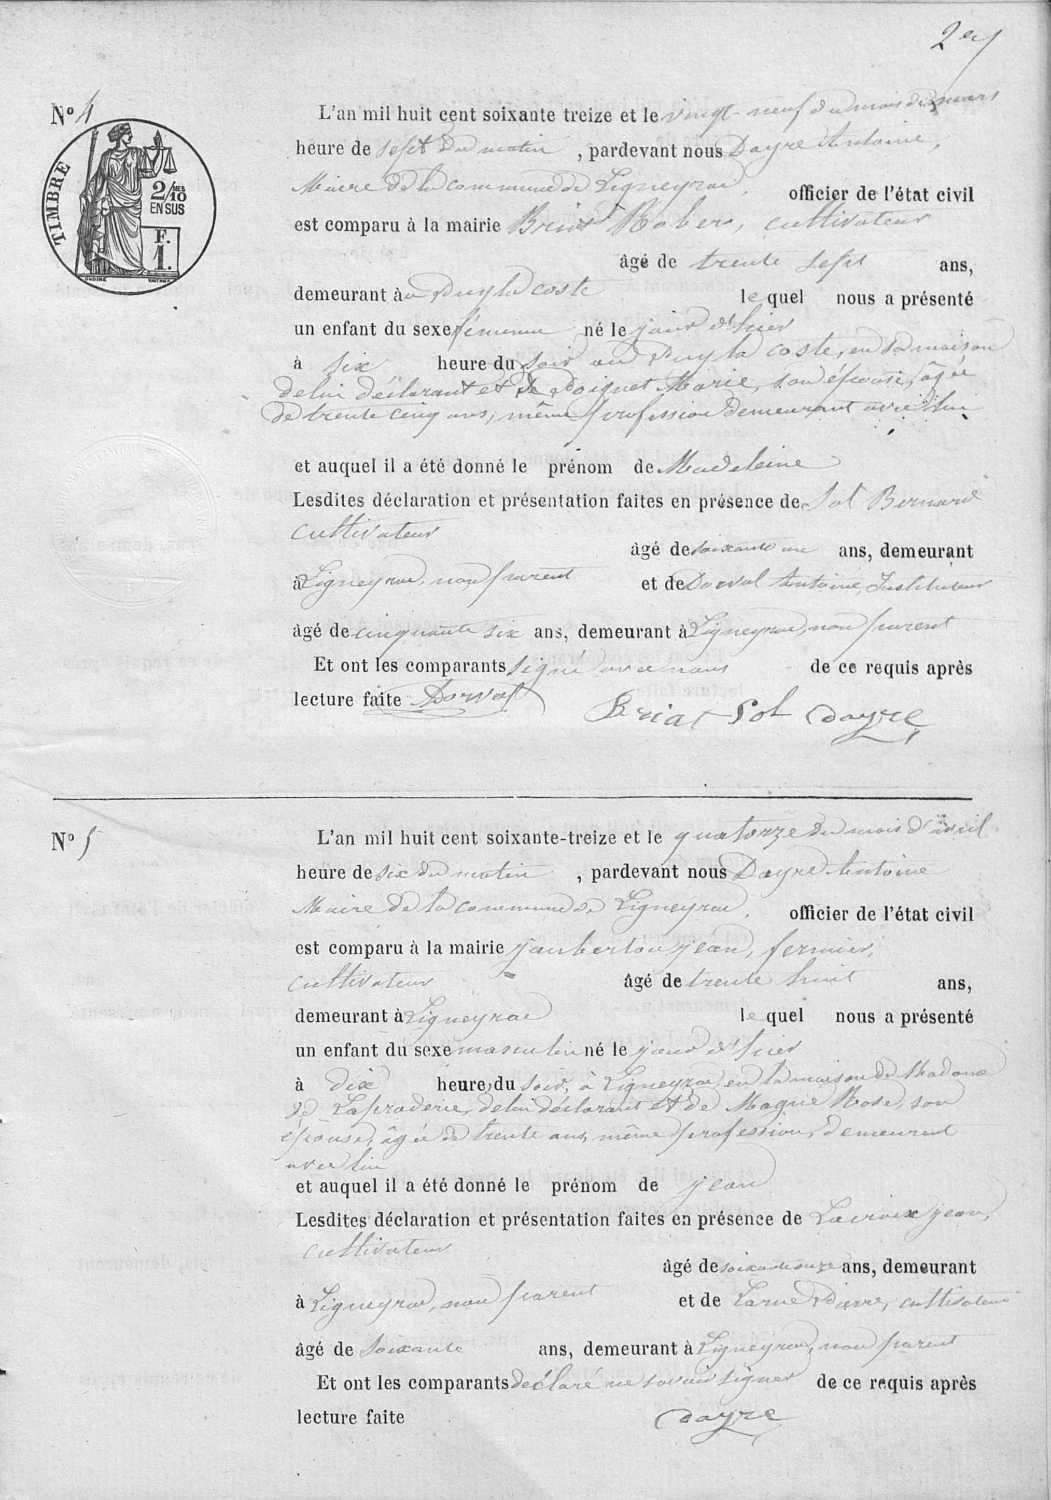 N° 4
TIMBRE
2/10 MES
EN SUS
F.
1.
L'an mil huit cent soixante treize et le vingt-neuf du mois de mars
heure de sept du matin, pardevant nous Dayre Antoine,
Maire de la commune de Ligneyrac officier de l'état civil
est comparu à la mairie Briat Rober, cultivateur
âgé de trente sept ans,
demeurant à Puy la coste lequel nous a présenté
un enfant du sexe féminin né le jour d'hier
à six heure du soir au Puy la coste, en sa maison
de lui déclarant et de Marie, son épouse, âgée
de trente cinq ans, même profession demeurant avec lui
et auquel il a été donné le prénom de Madeleine
Lesdites déclaration et présentation faites en présence de Sol Bernard
cultivateur
âgé de soixante un ans, demeurant
à Ligneyrac, non parent et de Dorval Antoine, Instituteur
âgé de cinquante six ans, demeurant à Ligneyrac, non parent
Et ont les comparants signé avec nous de ce requis après
lecture faite Dorval
Briat Sol Dayre
N° 5
L'an mil huit cent soixante-treize et le quatorze du mois d'avril
heure de six du matin, pardevant nous Dayre Antoine
Maire de la commune de Ligneyrac, officier de l'état civil
est comparu à la mairie Jaubertou jean, fermier,
cultivateur âgé de trente huit ans,
demeurant à Ligneyrac lequel nous a présenté
un enfant du sexe masculin né le jour d'hier
à dix heure du soir, à Ligneyrac, en la maison de Madame
de Lapraderie, de lui déclarant et de Magne Rose, son
épouse, âgée de trente ans, même profession, demeurant
avec lui
et auquel il a été donné le prénom de jean
Lesdites déclaration et présentation faites en présence de Lacroix jean,
cultivateur
âgé de soixante onze ans, demeurant
à Ligneyrac, non parent et de Larue Pierre, cultivateur
âgé de soixante ans, demeurant à Ligneyrac, non parent
Et ont les comparants déclaré ne savoir signer de ce requis après
lecture faite
Dayre